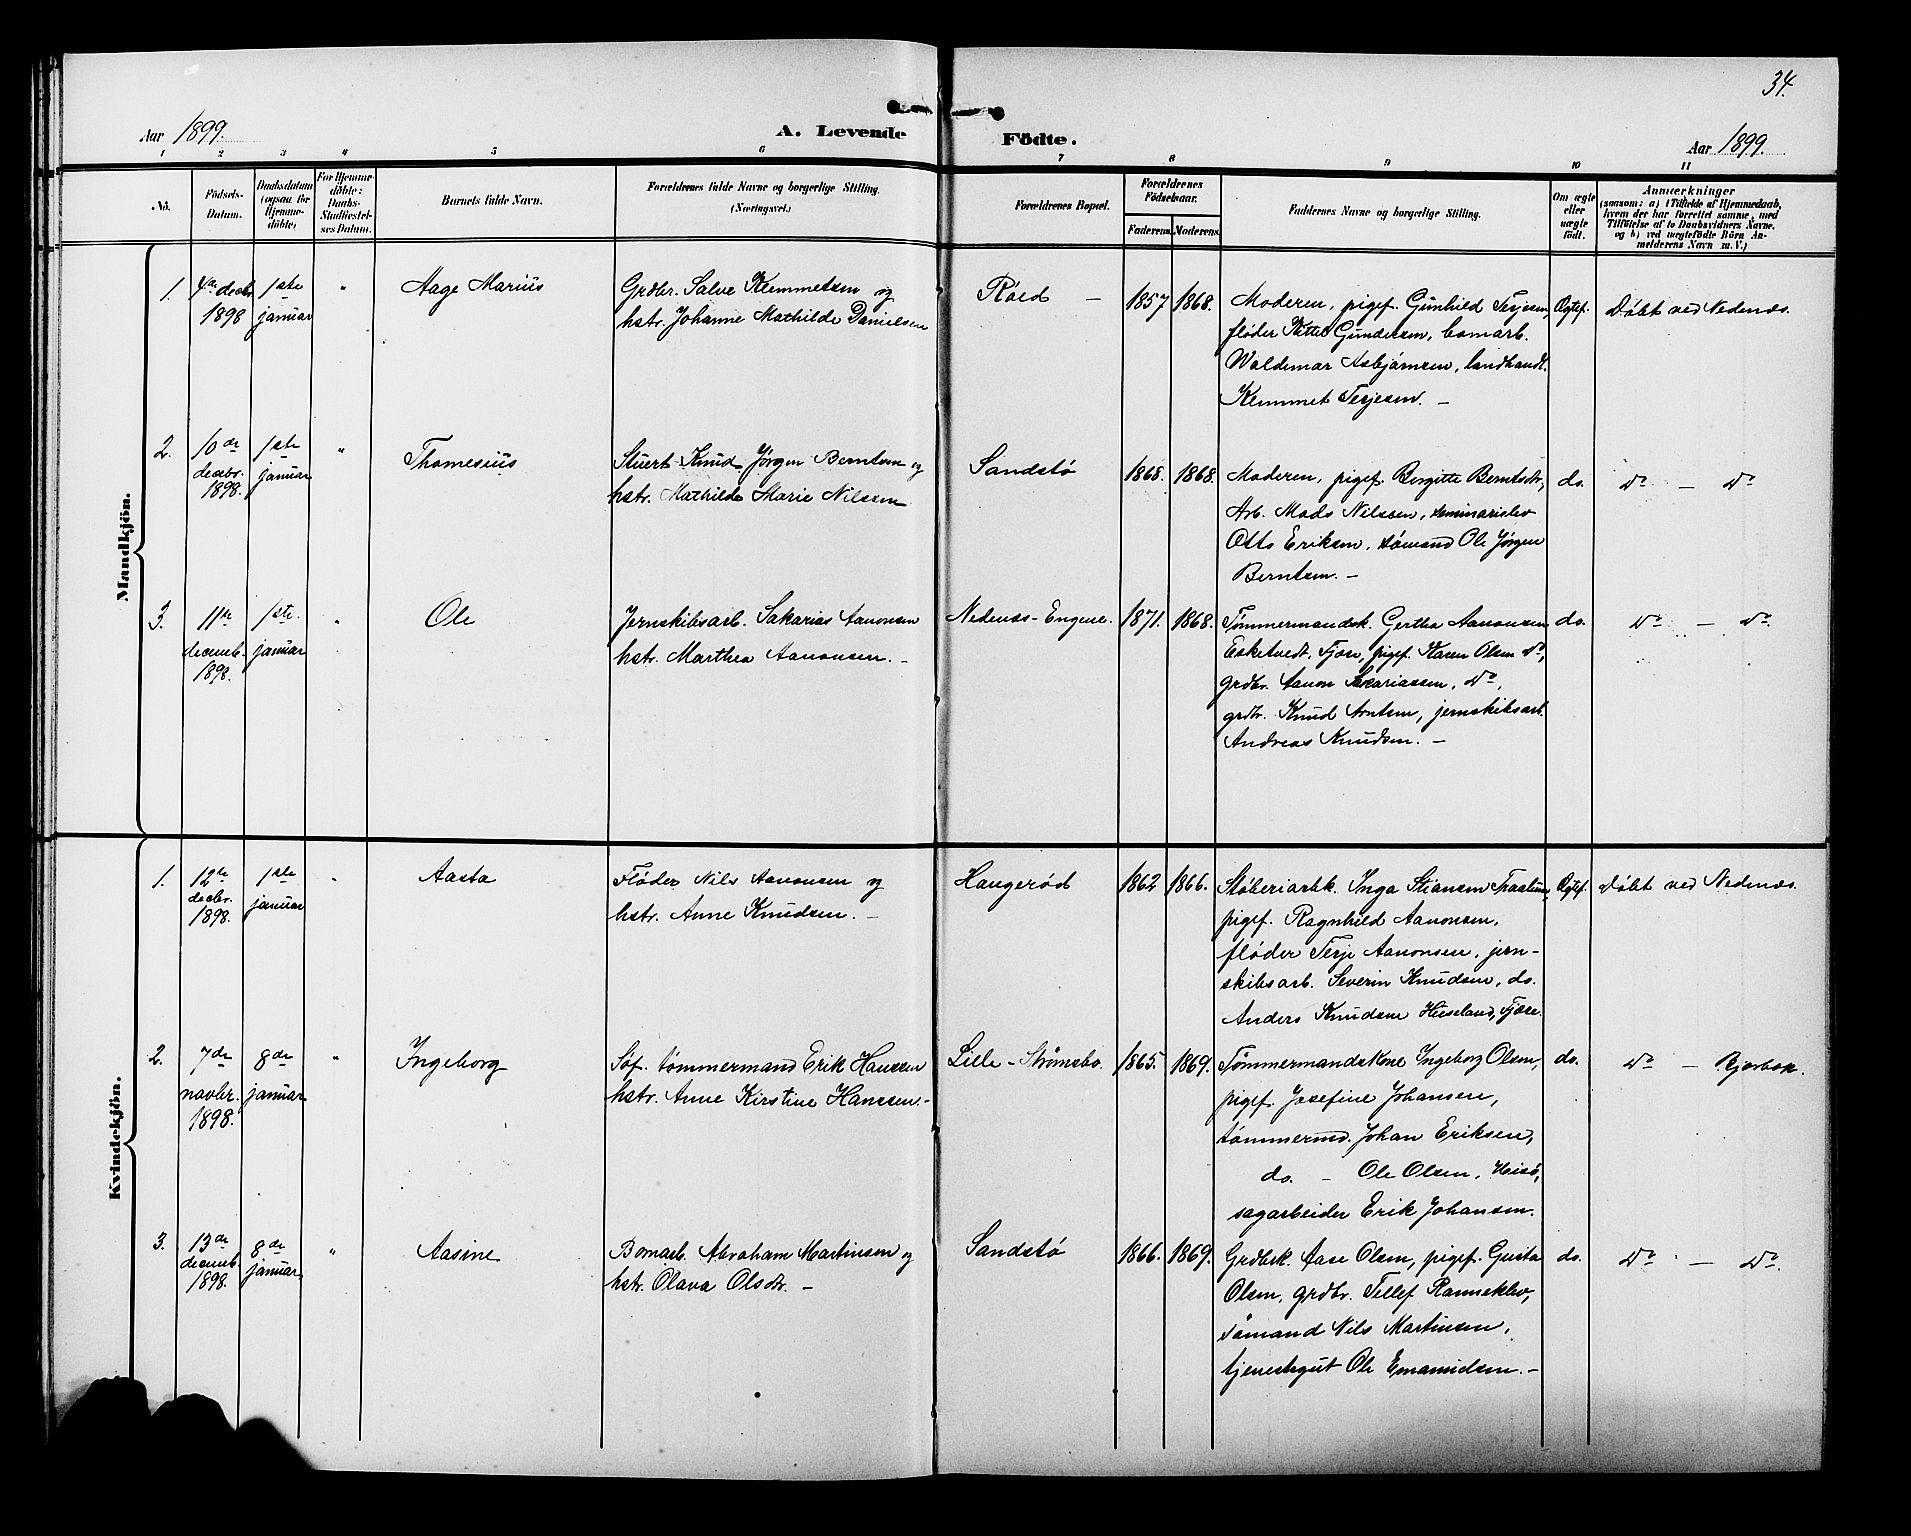 34.
Aar 1899.
A. Levende Födte.
Aar 1899.
1 2 3 4 5 6 7 8 9 10 11
No.
Födsels-
Datum.
Daabsdatum
(ogsaa for
Hjemme-
döbte)
For Hjemme-
döbte:
Daabs-
Stadfæstel-
ses Datum.
Barnets fulde Navn.
Forældrenes fulde Navne og borgerlige Stilling.
(Næringsvei.)
Forældrenes Bopæl.
Forældrenes
Födselsaar.
Faderens. Moderens.
Faddernes Navne og borgerlige Stilling.
Om ægte
eller
uægte
født.
Anmærkninger
(saasom: a) i Tilfælde af Hjemmedaab,
hvem der har forrettet samme, med
Tilföielse af to Daabsvidners Navne,
og b) ved uægtefödte Börn An-
melderens Navn m. V.)
Mandkjön.
1.
4de decbr.
1898
1ste
januar
"
Aage Marius
Grdbr. Salve Klemmetsen og
hstr. Johanne Mathilde Danielsen
Röed –
1857 1868.
Moderen, pigef. Gunhild Terjesen,
fløder Kittel Gundersen, bomarb.
Waldemar Asbjørnsen, landhandl.
Klemmet Terjesen. –
Ægtef.
Døbt ved Nedenæs.
2.
10de
decbr.
1898.
1ste
januar
"
Thomesius
Stuert Knud Jørgen Berntsen og
hstr. Mathilde Marie Nilssen
Sandstø
1868. 1868.
Moderen, pigef. Birgitte Berntsdtr,
Arb. Mads Nilssen, seminarielev
Otto Eriksen, sømand Ole Jørgen
Berntsen. –
do.
Do – Do
3.
11te
decemb.
1898.
1ste.
januar
"
Ole
Jernskibsarb. Sakarias Aanonsen
hstr. Marthea Aanonsen. –
Nedenæs-Engene.
1871. 1868.
Tømmermandsk. Gertha Aanonsen
Esketvedt, Fjære, pigef. Karen Olsen Do,
grdbr. Aanon Sakariassen, Do,
grdbr. Knud Arntsen, jernskibsarb.
Andreas Knudsen. –
do.
Do – Do.
Kvindekjön.
1.
12te
decbr.
1898.
1ste
januar
"
Aasta
Fløder Nils Aanonsen og
hstr. Anne Knudsen. –
Haugerød
1862 1866.
Støberiarbk. Inga Stiansen
pigef. Ragnhild Aanonsen,
fløder Terje Aanonsen, jern-
skibsarb. Severin Knudsen, do.
Anders Knudsen Heiseland, Fjære.
Ægtef.
Døbt ved Nedenæs.
2.
7de
novbr.
1898.
8de
januar
"
Ingeborg
Söf. tømmermand Erik Hanssen
hstr. Anne Kirstine Hanssen. –
Lille-Strømsbo.
1865. 1869.
Tømmermandskone Ingeborg Olsen,
pigef. Josefine Johansen,
tømmermd. Johan Eriksen,
do. – Ole Olsen, Heisö,
sagarbeider Erik Johansen.
do.
Do – Bjorbæk.
3.
13de
decemb.
1898.
8de
januar.
"
Aasine
Bomarb. Abraham Martinsen og
hstr. Olava Olsdtr. –
Sandstø
1866. 1869.
Grdbrk. Aase Olsen, pigef. Gusta
Olsen, grdbr. Tellef Ranneklev,
sömand Nils Martinsen,
tjenestegut Ole Emanuelsen. –
do.
Do – Do.